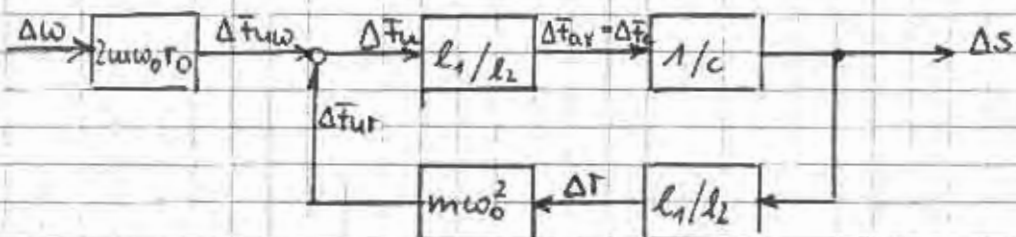 Δω
2mω₀r₀
ΔF̄uω
ΔF̄u
l₁/l₂
ΔF̄ax = ΔF̄c
1/c
Δs
ΔF̄ur
mω₀²
Δr
l₁/l₂